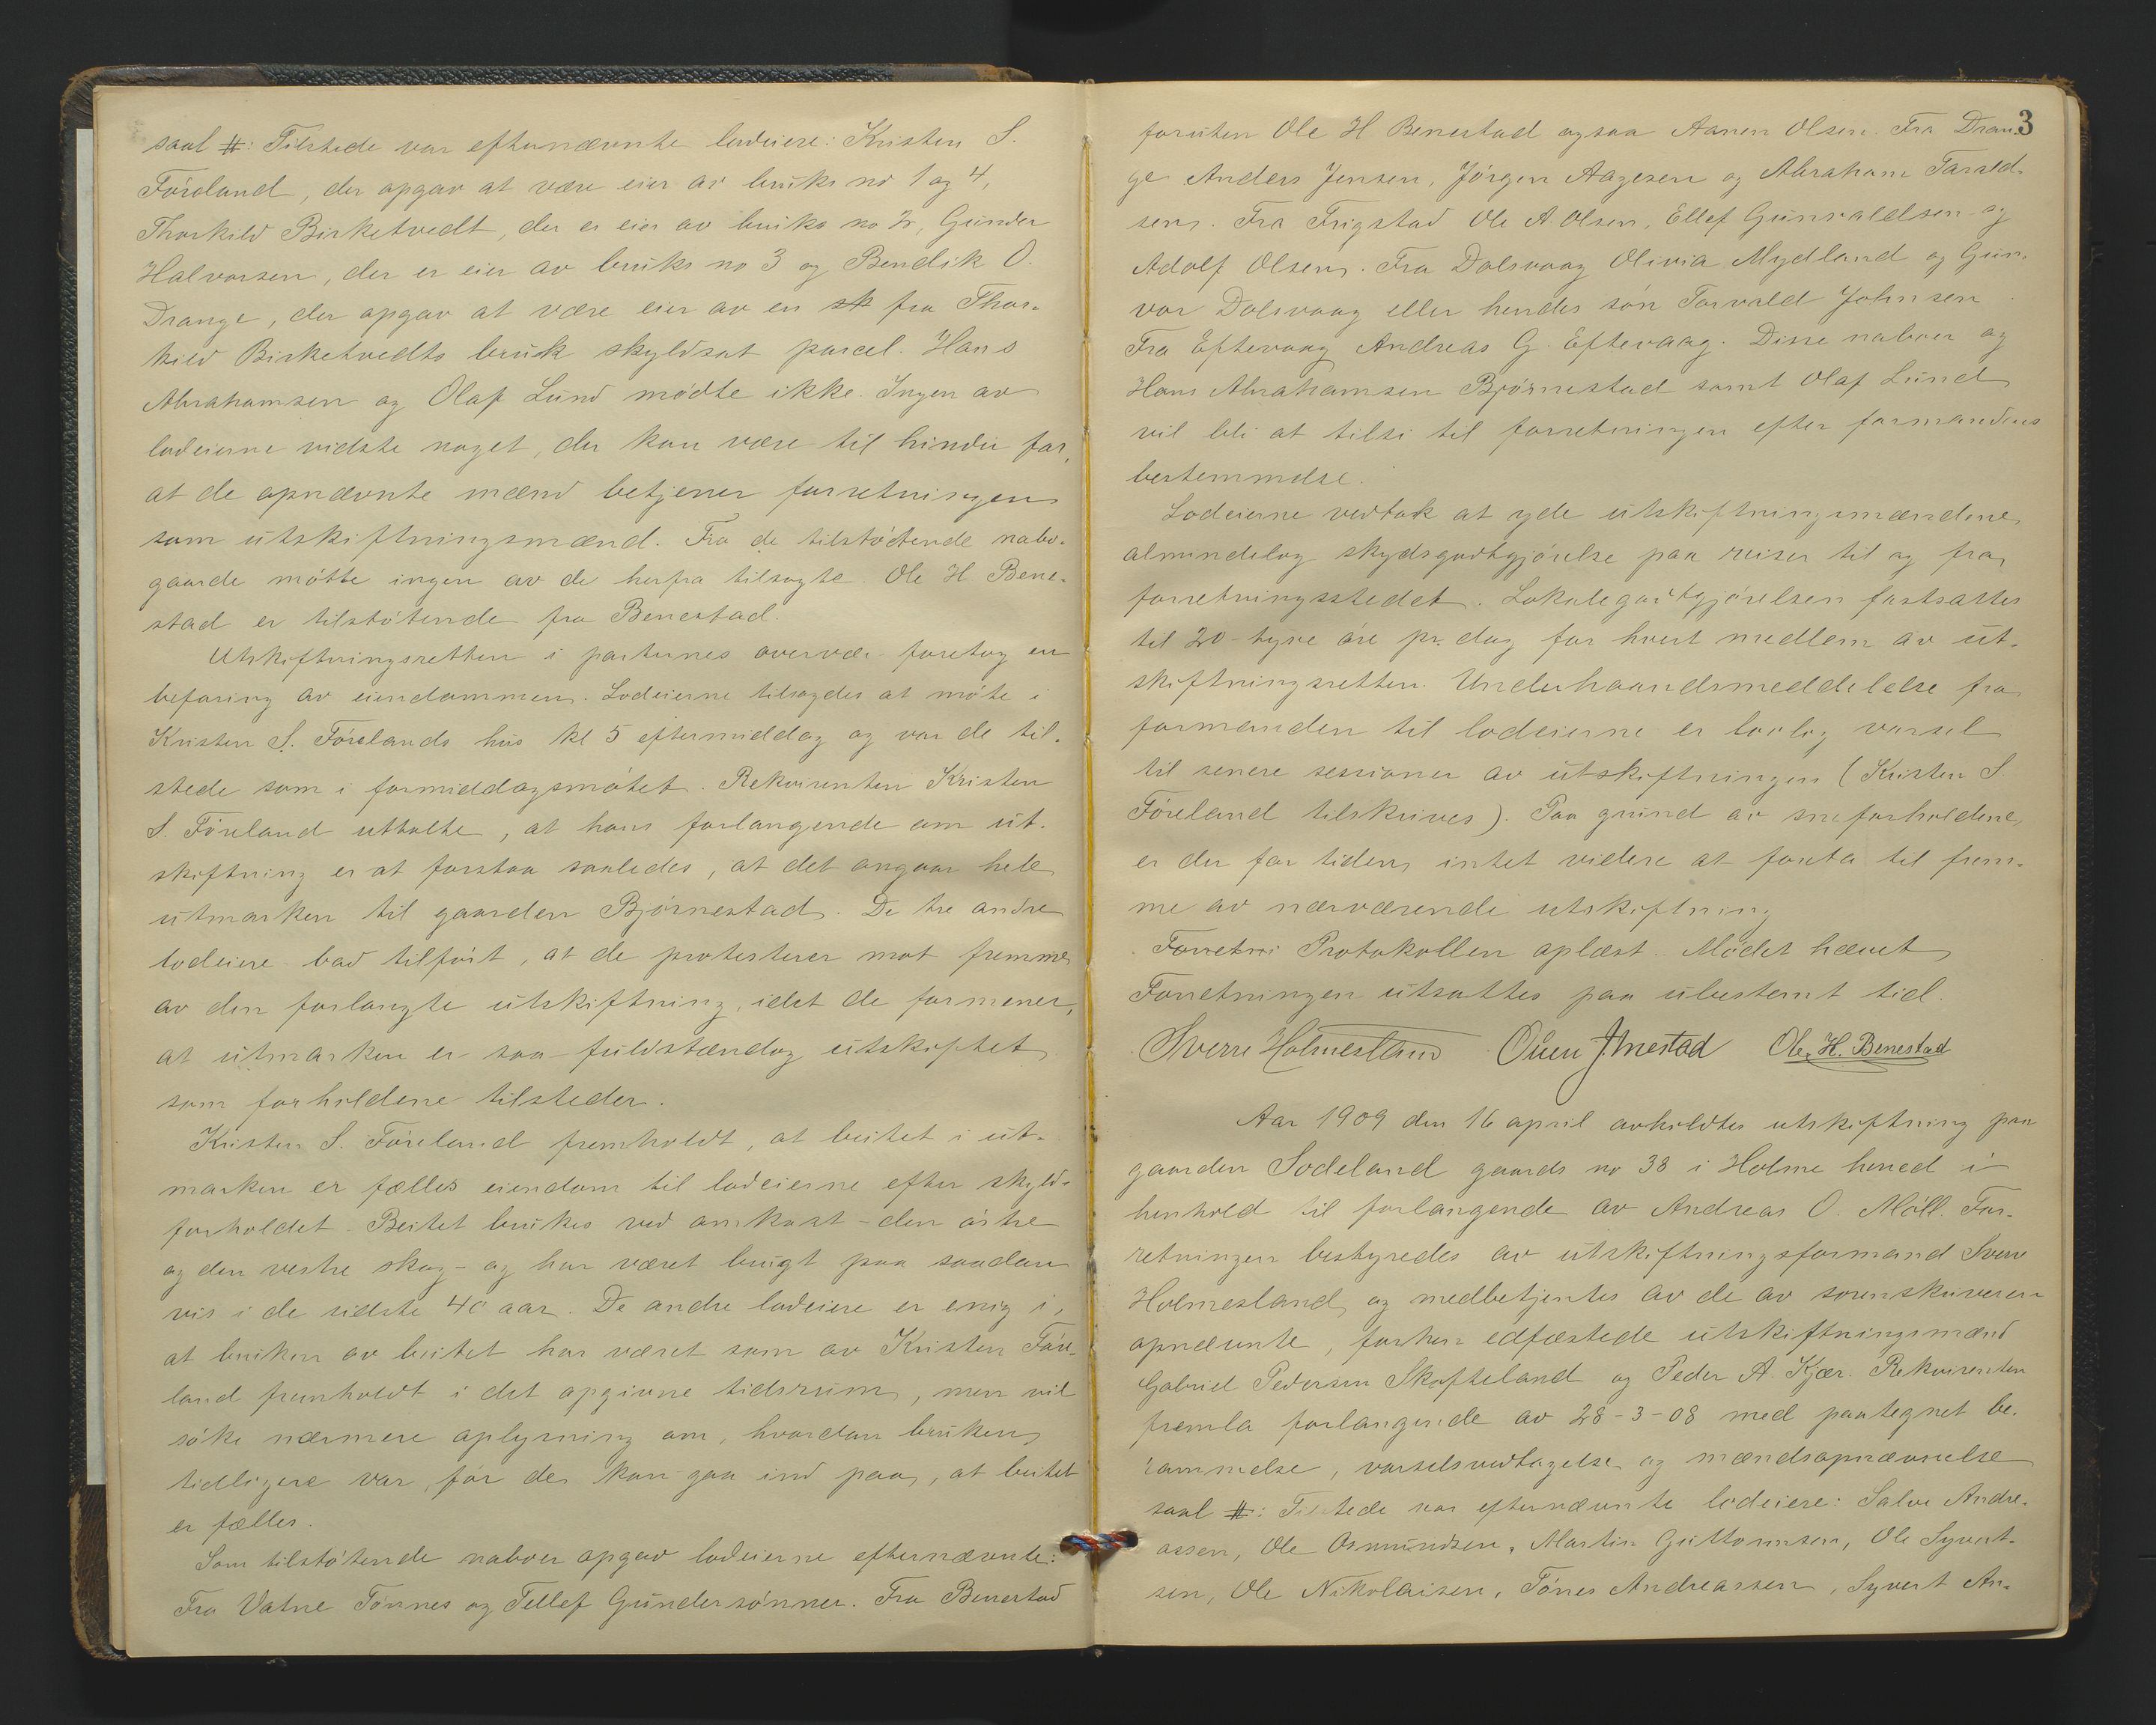 saal #: Tilstede var efternævnte lodeiere: Kristen S.
Föreland, der opgav at være eier av bruks no 1 og 4,
Thorkild Birketvedt, der er eier av bruks no 2, Gunder
Halvorsen, der er eier av bruks no 3 og Bendik O.
Drange, der opgav at være eier av en sk fra Thor-
kild Birketvedts bruk skyldsat parcel. Hans
Abrahamsen og Olaf Lund mödte ikke. Ingen av
lodeierne vidste noget, der kan være til hinder for,
at de opnævnte mænd betjener forretningen
som utskiftningsmænd. Fra de tilstötende nabo-
gaarde mötte ingen av de herfra tilsagte. Ole H Bene-
stad er tilstötende fra Benestad.
Utskiftningsretten i parternes overvær foretog en
befaring av eiendommen. Lodeierne tilsagdes at möte i
Kristen S. Förelands hus kl 5 eftermiddag og var de til-
stede som i formiddagsmötet. Rekvirenten Kristen
S. Föreland uttalte, at hans forlangende om ut-
skiftning er at forstaa saaledes, at det angaar hele
utmarken til gaarden Björnestad. De tre andre
lodeiere bad tilfört, at de protesterer mot fremme
av den forlangte utskiftning, idet de formener,
at utmarken er saa fuldstændig utskiftet
som forholdene tilsteder.
Kristen S. Föreland fremholdt, at beitet i ut-
marken er fælles eiendom til lodeierne efter skyld-
forholdet. Beitet brukes ved omkast - den östre
og den vestre skog - og har været brugt paa saadan
vis i de sidste 40 aar. De andre lodeiere er enig i,
at bruken av beitet har været som av Kristen Före-
land fremholdt i det opgivne tidsrum, men vil
söke nærmere oplysning om, hvordan bruken
tidligere var, för de kan gaa ind paa, at beitet
er fælles.
Som tilstötende naboer opgav lodeierne efternævnte:
Fra Vatne Tönnes og Tellef Gundersönner. Fra Benestad
3
foruten Ole H Benestad ogsaa Aanen Olsen. Fra Dran-
ge Anders Jensen, Jörgen Aagesen og Abraham Tarald-
sen. Fra Frigstad Ole A Olsen, Ellef Gunvaldsen og
Adolf Olsen. Fra Dalsvaag Olivia Mydland og Gun-
vor Dalsvaag eller hendes sön Torvald Johnsen
Fra Eftevaag Andreas G. Eftevaag. Disse naboer og
Hans Abrahamsen Björnestad samt Olaf Lund
vil bli at tilsi til forretningen efter formandens
bestemmelse.
Lodeierne vedtok at yde utskiftningsmændene
almindelig skydsgodtgjörelse paa reiser til og fra
forretningsstedet. Lokalegodtgjörelsen fastsattes
til 20 - tyve öre pr. dag for hvert medlem av ut-
skiftningsretten. Underhaandsmeddelelse fra
formanden til lodeierne er lovlig varsel
til senere sessioner av utskiftningen (Kristen S.
Föreland tilskrives). Paa grund av sneforholdene
er der for tiden intet videre at foreta til frem-
me av nærværende utskiftning
Forretni Protokollen oplæst. Mödet hævet
Forretningen utsattes paa ubestemt tid.
Sverre Holmesland Ole H. Benestad
Aar 1909 den 16 april avholdtes utskiftning paa
gaarden Sodeland gaards no 38 i Holme hered i
henhold til forlangende av Andreas O. Möll. For-
retningen bestyredes av utskiftningsformand Sverre
Holmesland og medbetjentes av de av sorenskriveren
opnævnte, forhen edfæstede utskiftningsmænd
Gabriel Pedersen Skofteland og Peder A. Kjær. Rekvirenten
fremla forlangende av 28-3-08 med paategnet be-
rammelse, varselsvedtagelse og mændsopnævnelse
saal #: Tilstede var efternævnte lodeiere: Salve Andre-
assen, Ole Osmundsen, Martin Guttormsen, Ole Syvert-
sen, Ole Nikolaisen, Tönes Andreassen, Syvert An-